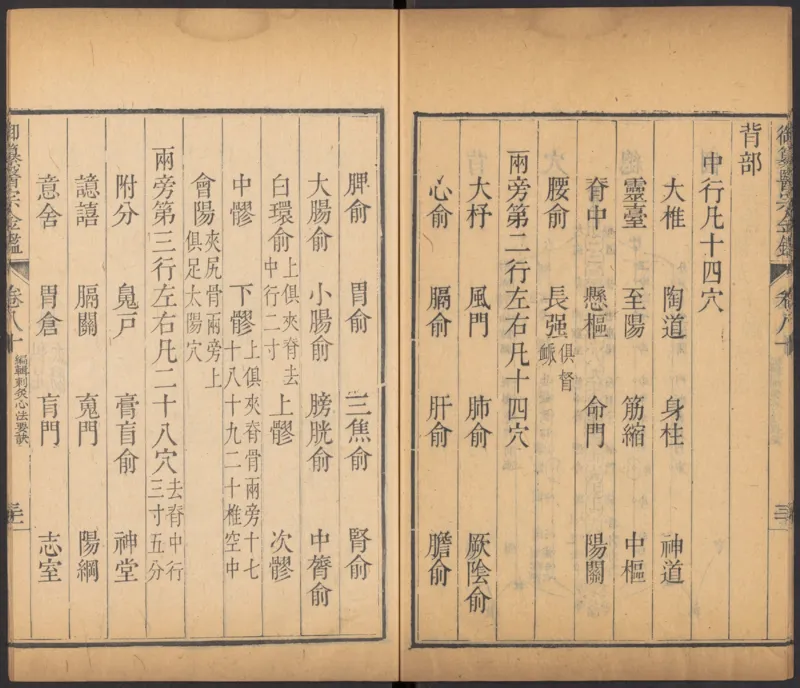 背部
中行凡十四穴
大椎 陶道 身柱 神道
靈臺 至陽 筋縮 中樞
脊中 懸樞 命門 陽關
腰俞 長强 俱督脈
兩旁第二行左右凡十四穴
大杼 風門 肺俞 厥陰俞
心俞 膈俞 肝俞 膽俞
脾俞 胃俞 三焦俞 腎俞
大腸俞 小腸俞 膀胱俞 中膂俞
白環俞 上俱夾脊去中行二寸 上髎 次髎
中髎 下髎 上俱夾脊骨兩旁十七十八十九二十椎空中
會陽 夾尻骨兩旁上俱足太陽穴
兩旁第三行左右凡二十八穴 去脊中行三寸五分
附分 魄戶 膏肓俞 神堂
譩譆 膈關 䰟門 陽綱
意舍 胃倉 肓門 志室
御纂醫宗金鑑 卷八十 編輯刺灸心法要訣